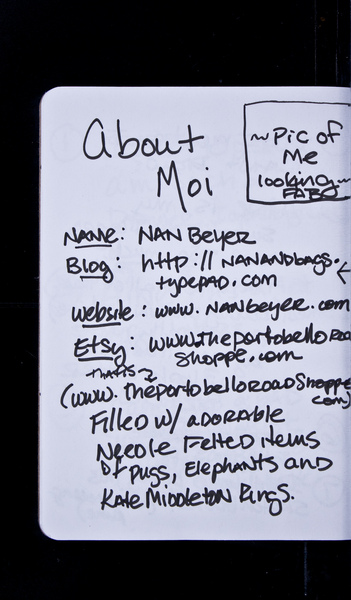 About
Moi
~ Pic of
Me
looking ~
FABO
NAME: NAN Beyer
Blog: http://NANANDbags.
typepad.com
website: www.NANbeyer.com
Etsy: www.theportobello ROAD
shoppe.com
that is
(www.theportobelloROADShoppe
com)
Filled w/ adorable
Needle Felted items
of pugs, Elephants and
Kate Middleton Rings.